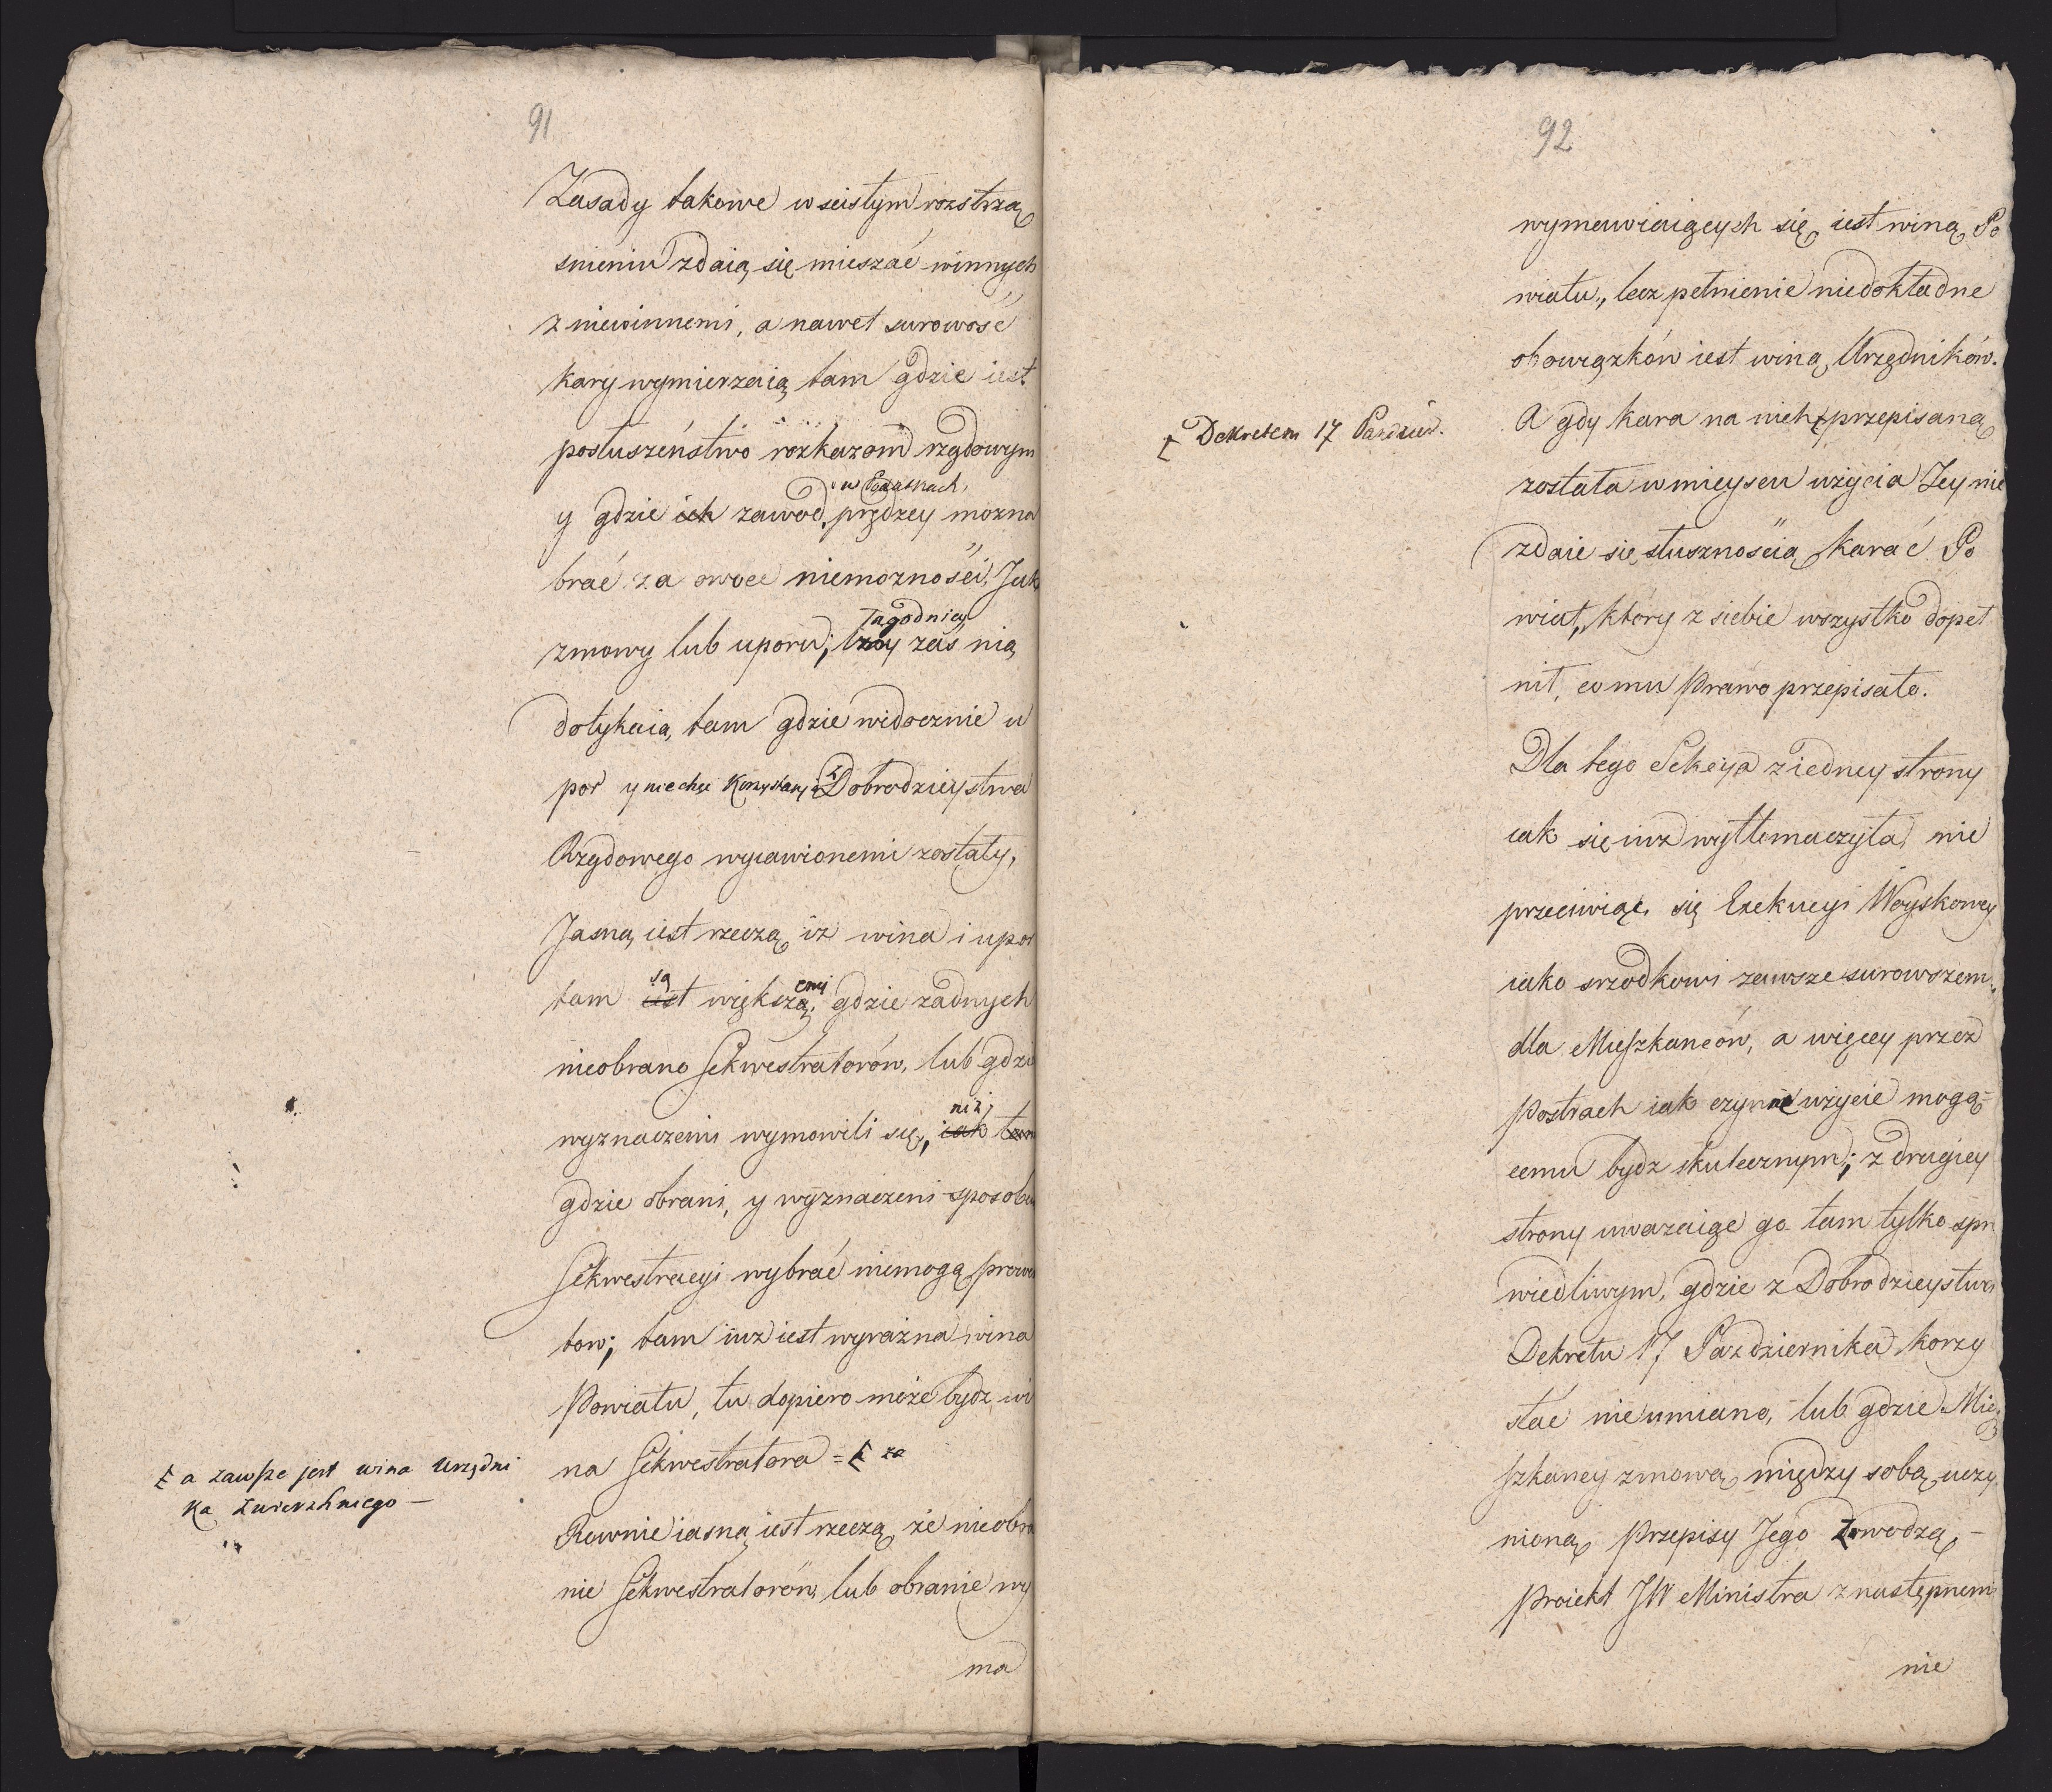 91
Zasady takowe w scistym rozstrzą
snieniu zdaią się mieszać winnych
z niewinnemi, a nawet surowość
kary wymierzaią tam gdzie iest
posłuszeństwo rozkazom rządowym
w Podatkach,
y gdzie ich zawod prędzey mozna
brać za owoc niemozności, Jak
łagodniey
zmowy lub uporu; zaś nią
dotykaią, tam gdzie widocznie u
por y niechęć Korzystania z Dobrodzieystwa
Rządowego wyiawionemi zostały,
Jasną iest rzeczą iz wina i upor
są emi
tam iest większą, gdzie zadnych
nieobrano Sekwestratorów, lub gdzie
niż
wyznaczeni wymowili się, iak tam
gdzie obrani, y wyznaczeni sposobem
Sekwestracyi wybrać niemogą prowen
tow; tam iuz iest wyraźna wina
Powiatu, tu dopiero może bydz wi
na Sekwestratora = za
a zawsze jest wina Urzędni
ka Zwierzchniego —
Rownie iasną iest rzeczą, że nieobra
nie Sekwestratorów lub obranie wy
ma
92
wymawiaiących się iest winą Po
wiatu, lecz pełnienie niedokładne
obowiązków iest winą Urzędników.
A gdy kara na nich przepisaną
Dekretem 17 Paździer.
została w mieyscu użycia Jey nie
zdaie się słusznością karać Po
wiat, który z siebie wszystko dopeł
nił, co mu Prawo przepisało.
Dla tego Sekcya z iedney strony
iak się iuż wytłomaczyła, nie
przeciwiąc się Exekucyi Woyskowey
iako srzodkowi zawsze surowszem
dla Mieszkancow, a więcey przez
Postrach iak czynne użycie mogą=
cemu bydz skutecznym; z drugiey
strony uwazaiąc go tam tylko spra
wiedliwym, gdzie z Dobrodzieystwa
Dekretu 17 Pazdziernika korzy
stać nieumiano, lub gdzie Mie
szkancy zmową między sobą uczy
nioną Przepisy Jego Zawodzą, —
Proiekt JW Ministra z następnem
nie